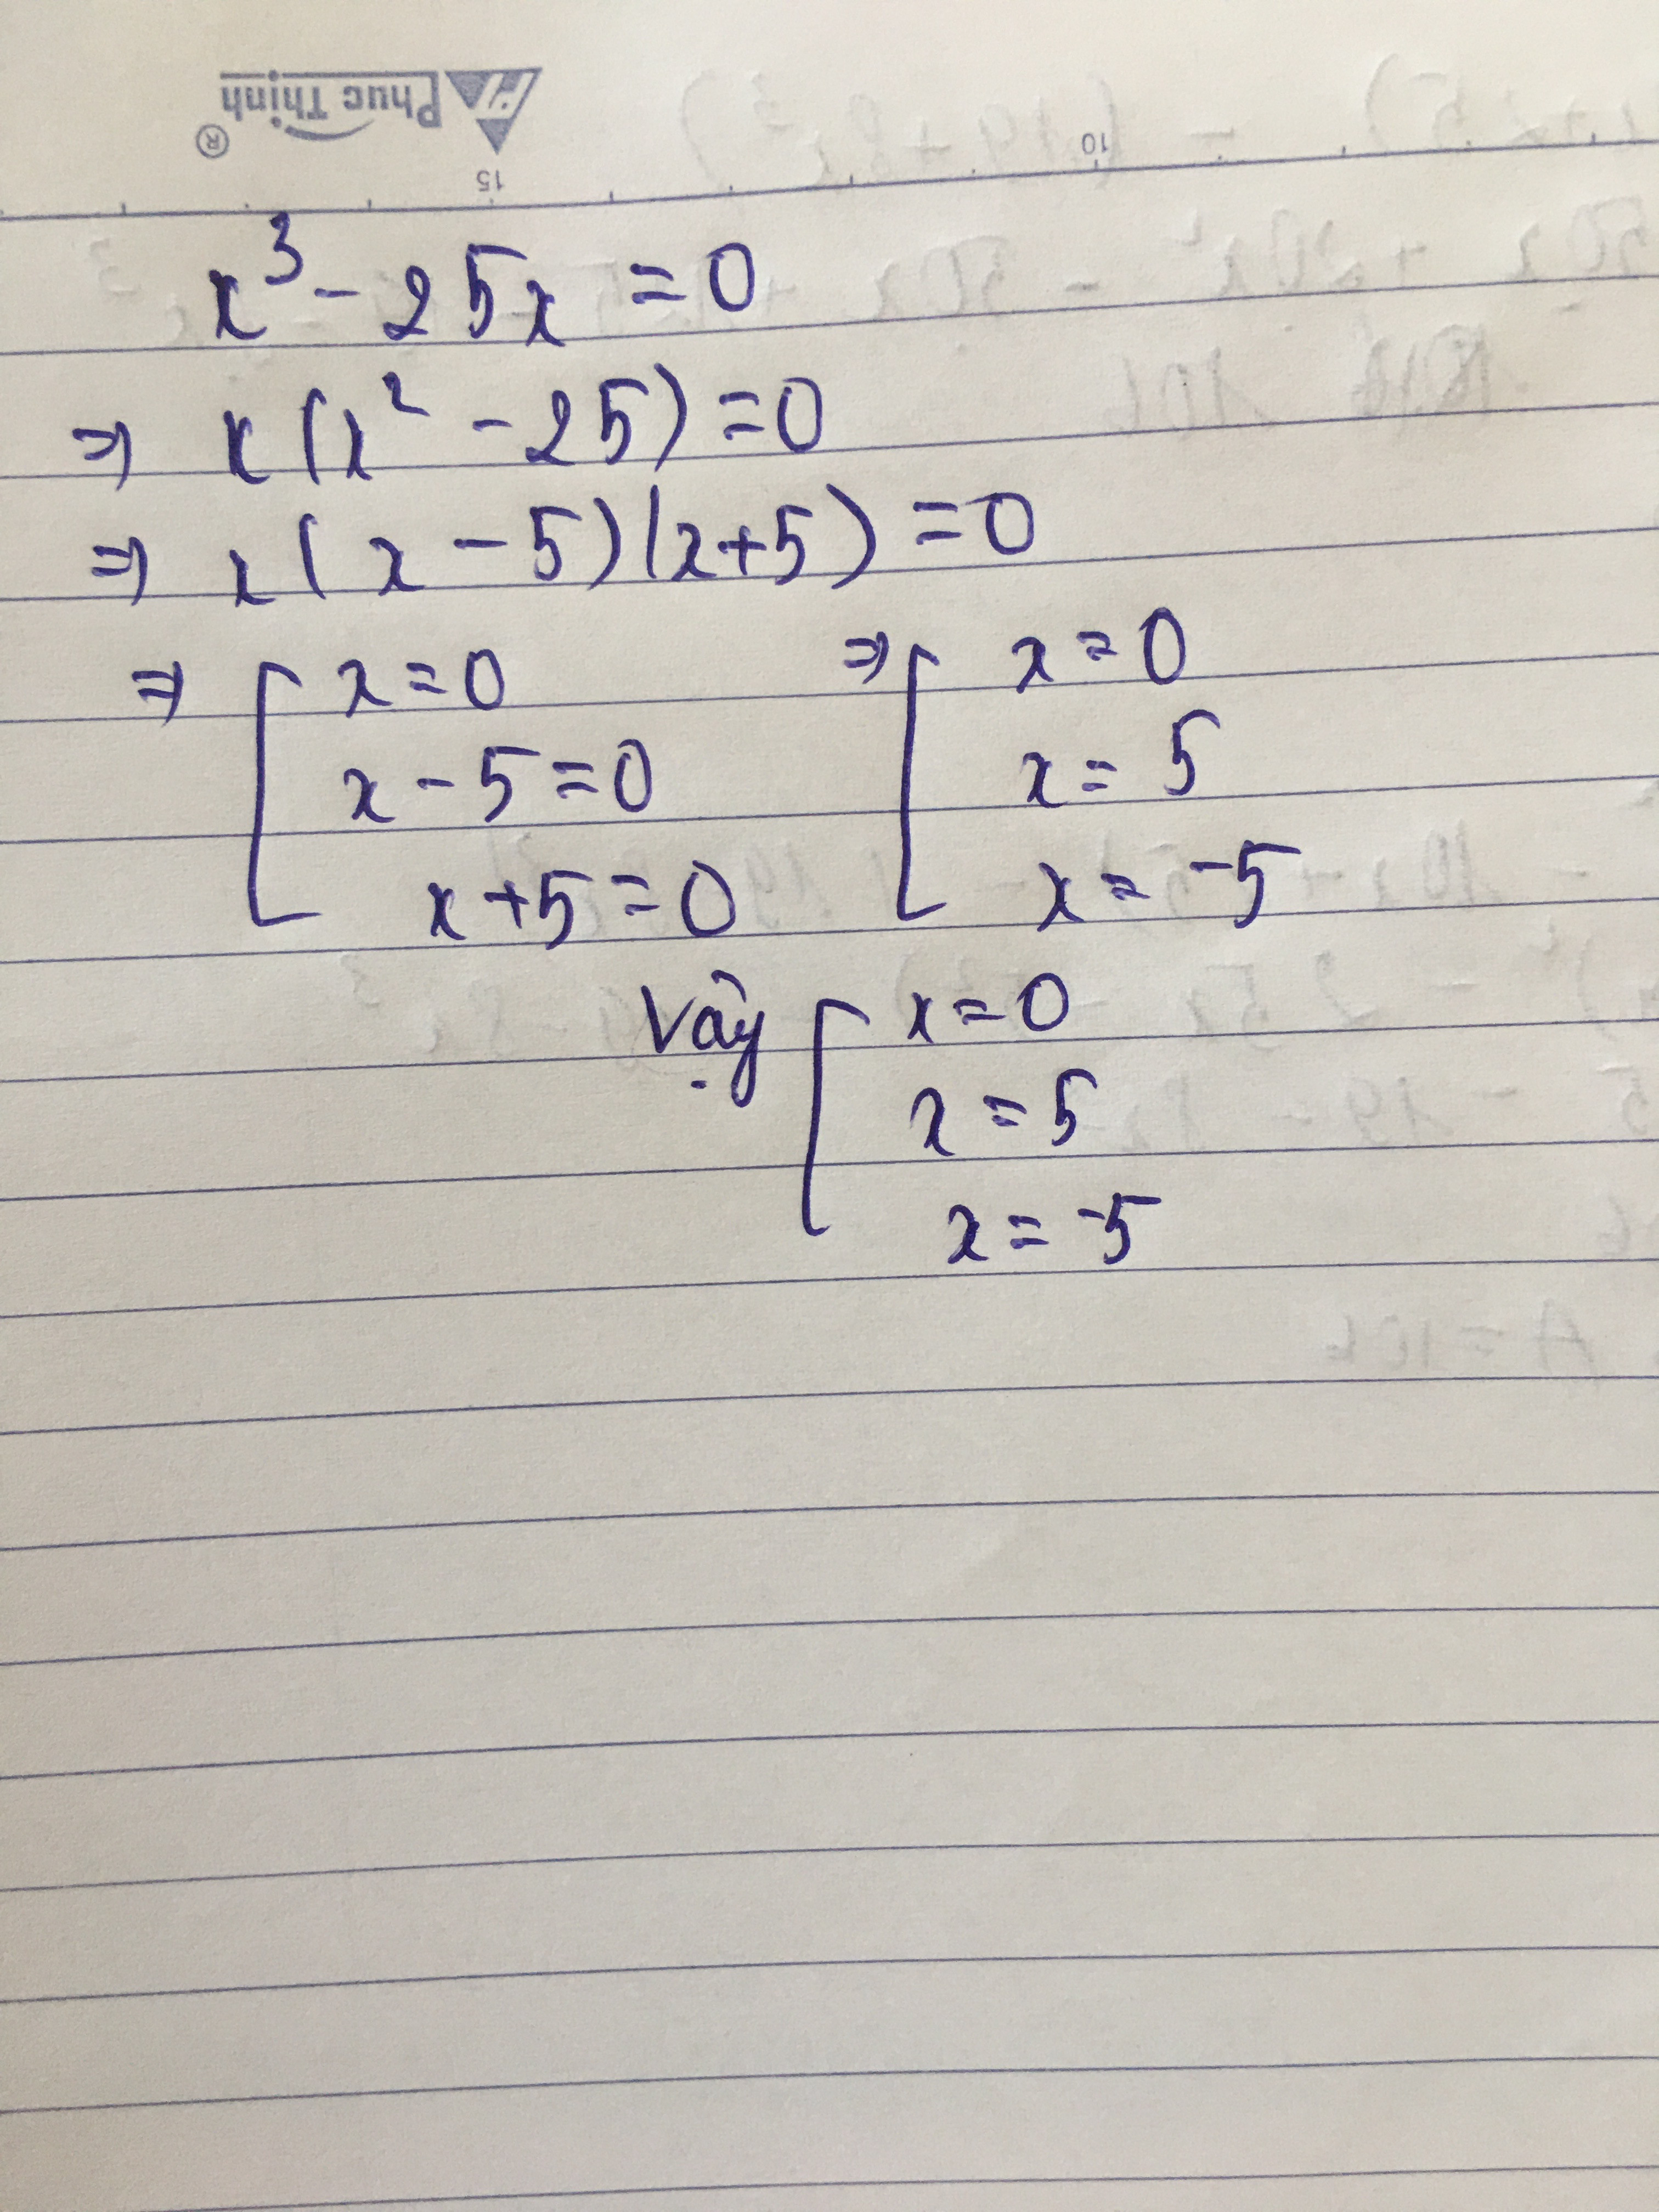 Phuc Thịnh ®
15 10
x³ - 25x = 0
⇒ x(x² - 25) = 0
⇒ x(x - 5)(x+5) = 0
⇒ [ x = 0 ⇒ [ x = 0
x - 5 = 0 x = 5
x + 5 = 0 x = -5
Vậy [ x = 0
x = 5
x = -5